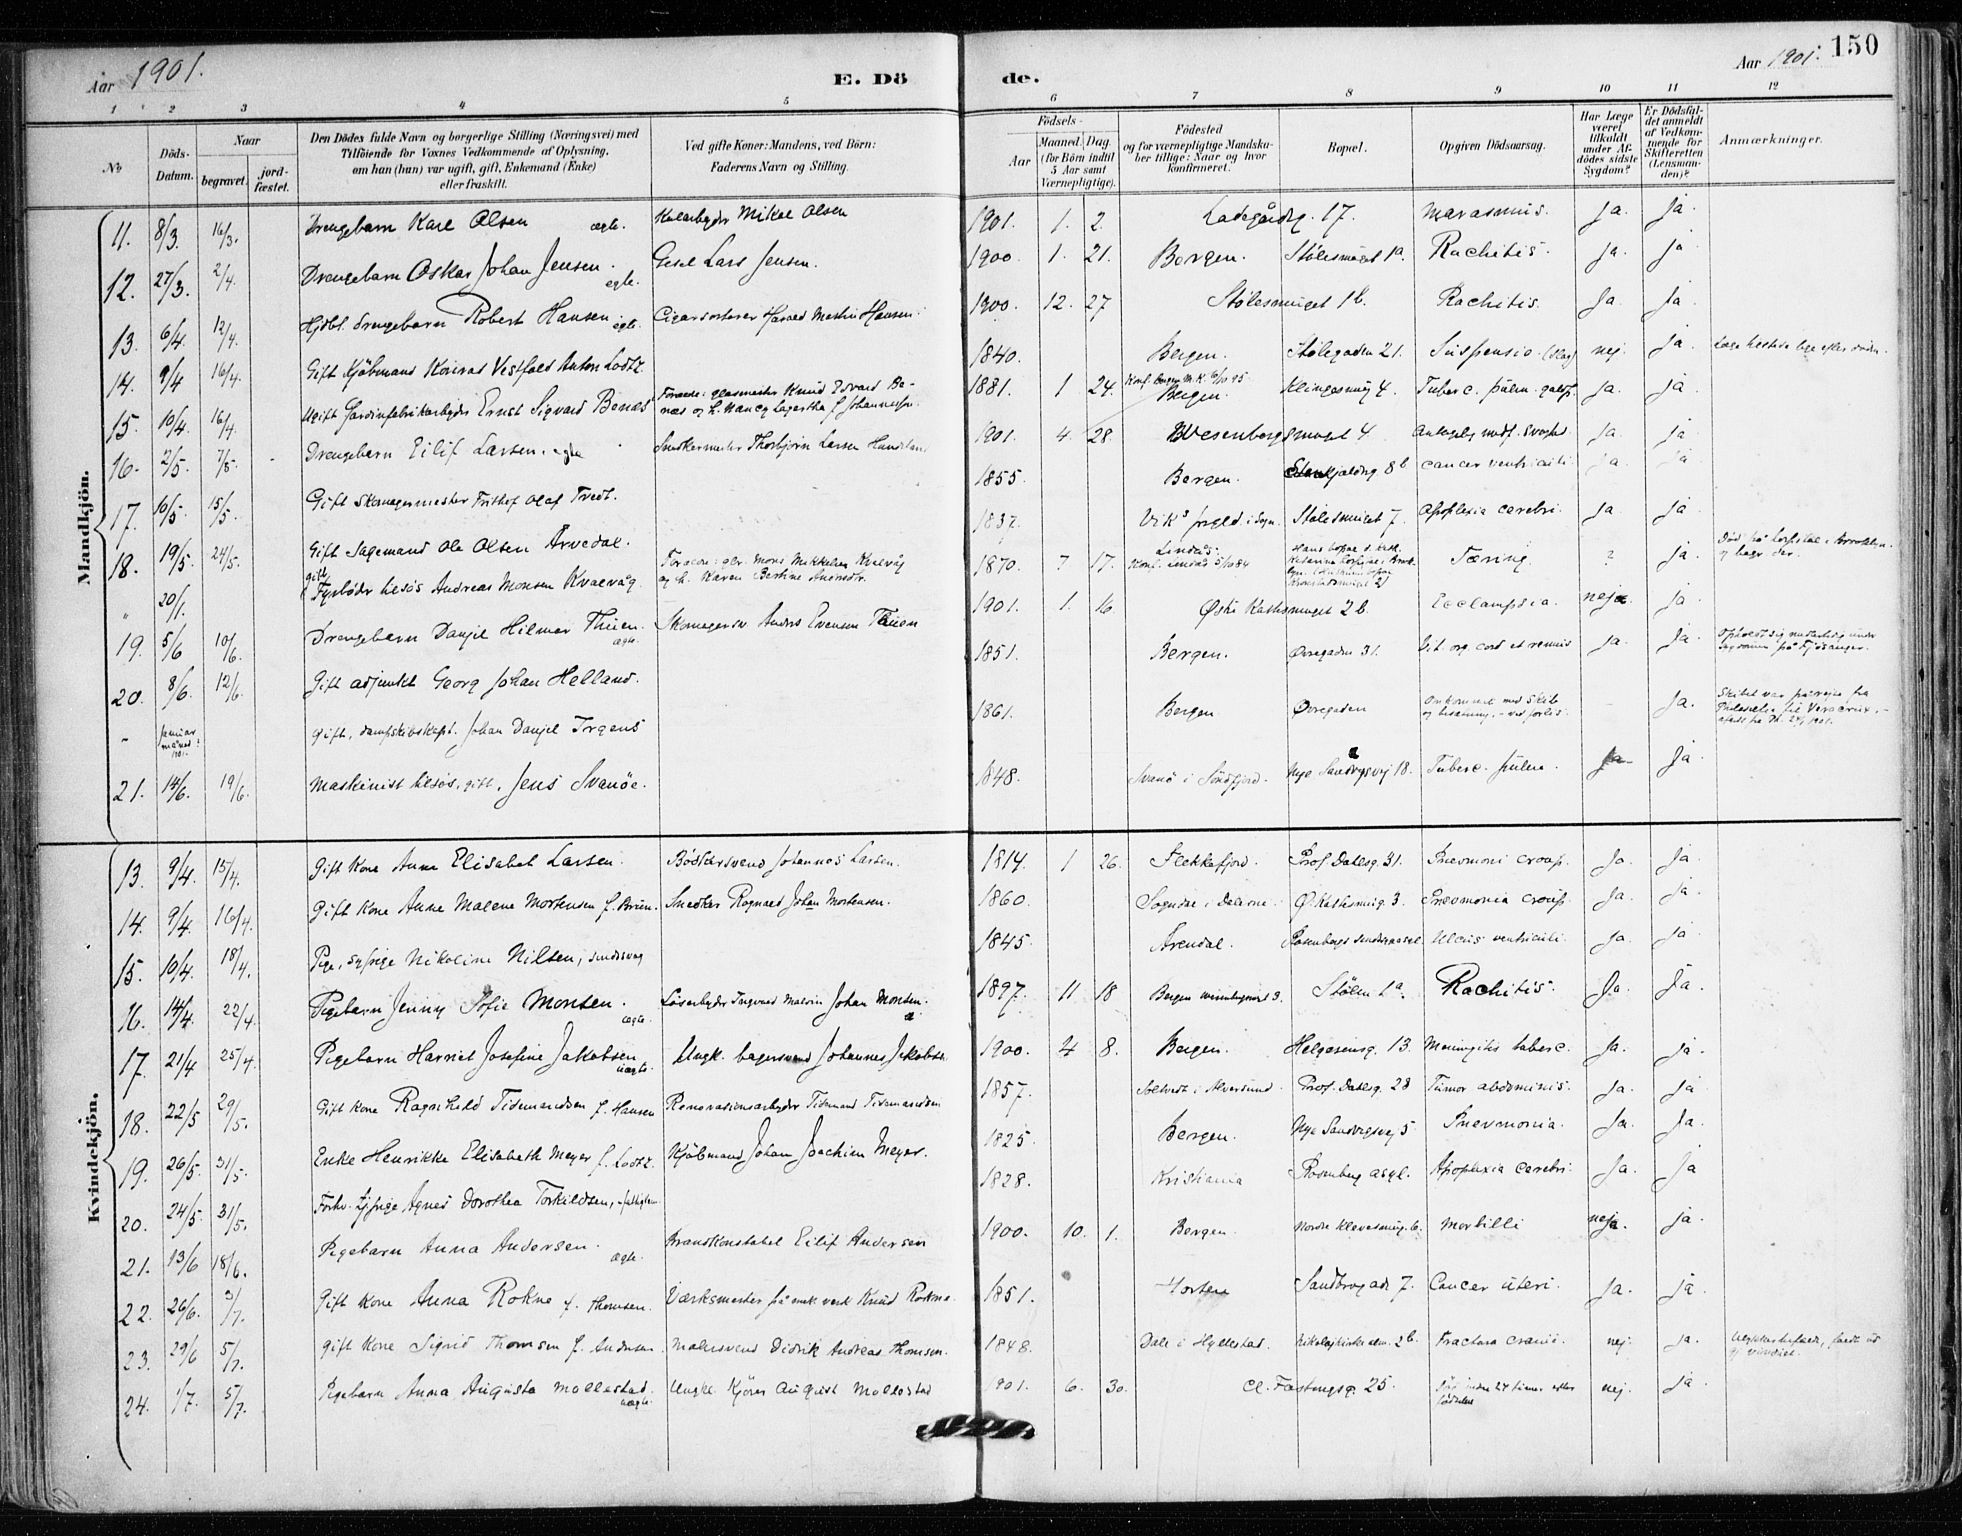 Aar 1901.
E. Dö
de.
Aar 1901.
150
1 2 3 4 5 6 7 8 9 10 11 12
No
Döds-Datum.
Naar
begravet.
jord-fæstet.
Den Dödes fulde Navn og borgerlige Stilling (Næringsvei) med
Tilföiende for Voxnes Vedkommende af Oplysning,
om han (hun) var ugift, gift, Enkemand (Enke)
eller fraskilt.
Ved gifte Koner: Mandens, ved Börn:
Faderens Navn og Stilling.
Födsels-
Aar
Maaned. Dag
(for Börn indtil
5 Aar samt
Værnepligtige).
Födested
og for værnepligtige Mandska-
ber tillige: Naar og hvor
konfirmeret.
Bopæl.
Opgiven Dödsaarsag.
Har Læge
været
tilkaldt
under Af-
dödes sidste
Sygdom?
Er Dödsfal-
det anmeldt
af Vedkom-
mende for
Skifteretten
(Lensman-
den)?
Anmærkninger.
Mandkjön.
11. 8/3. 16/3. Drengebarn Karl Olsen ægte. Mikal Olsen 1901. 1. 2. Ladegårdsg. 17. Marasmus. Ja. Ja.
12. 27/3. 2/4. Drengebarn Oskar Johan Jensen. egte. Lars Jensen. 1900. 1. 21. Bergen. Stølesmuget 1a. Rachitis. Ja. Ja
13. 6/4. 12/4. Hjdbt. Drengebarn Robert Hansen egte. Cigarsorterer Harald Martin Hansen. 1900. 12. 27 Stølesmuget 1b. Rachitis. Ja. Ja
14. 9/4 16/4. Gift Kjøbmand Konrad Vestfald Anton Lodtz. 1840. Bergen. Stølegaden 21. Suspensio. nej. Ja.
15. 10/4. 16/4. Ugift Gardinfabrikarbejder Ernst Sigvard Benæs Glasmester Knud Edvard Benæs 1881. 1 24. Bergen. Klingesmug 4. Tuberc. pulm. Ja. Ja
16. 2/5. 7/5. Drengebarn Eilif Larsen. egte Snedkermester Thorbjørn Larsen 1901. 4. 28. Wesenbergsmuget 4. Ja. Ja
17. 10/5. 15/5. Gift Skomagermester Frithof Olaf Tvedt. 1855. Bergen. 8b cancer ventriculi. Ja. Ja
18. 19/5. 24/5. Gift Sagemand Ole Olsen Arvedal. 1837. Vik Stølesmuget 7. Apoplexia cerebri. Ja. Ja
" 20/1. gift Fyrbøder tilsøs Andreas Monsen Kvalvåg. Mons Mikkelsen Kvalvåg 1870 7. 17. Lindås. Konf. Lindås 5/10 84 Tæring. ? Ja.
19. 5/6 10/6. Drengebarn Danjel Hilmar Thuen. ægte. Skomagersv. Anders Evensen Thuen 1901. 1. 16. 2b. Ecclampsia. nej Ja.
20. 8/6. 12/6. Gift adjunkt Georg Johan Helland. 1851. Bergen. Øvregaden 31. Vit. org. cord. et renum Ja. Ja.
- Januar måned 1901. Gift, dampskibskapt. Johan Danjel Irgens 1861. Bergen. Øvregaden Omkommet med Skib og besætning, - ved forlis. Ja. Skibet var på rejse fra Philadelfia til Veracrux,
21. 14/6. 19/6. Maskinist tilsøs, gift, Jens Svanöe. 1848. Svanö i Söndfjord. Nye Sandvigsvej 18. Tuberc. pulm. Ja. Ja.
Kvindekjön.
13. 9/4. 15/4. Gift Kone Anna Elisabet Larsen. Bødkersvend Johannes Larsen. 1814. 1 26. Flekkefjord. Prof. Dahlsg. 31. Pnevmoni croup. Ja. Ja.
14. 9/4. 16/4. Gift Kone Anne Malene Mortensen f. Bruun. Snedker Ragnald Johan Mortensen. 1860. Sogndal i Dalerne. 3. Pnevmonia croup. Ja. Ja
15. 10/4. 18/4. Pige, syerige Nikoline Nilsen, sindssvag 1845. Arendal. Rosenbergs Ulcus ventriculi. Ja Ja
16. 14/4. 22/4. Pigebarn Jenny Sofie Monsen. ægte. Ingvald Malvin Johan Monsen. 1897. 11 18 Bergen 3. Stølen 1a. Rachitis. Ja. Ja.
17. 21/4 25/4. Pigebarn Harriet Josefine Jakobsen uægte. Ungk. bagersvend Johannes Jakobsen 1900. 4 8. Bergen. Helgesensg. 13. Meningitis tuberc. Ja. Ja.
18. 22/5 29/5. Gift Kone Ragnhild Tidemandsen f. Hansen Renovasjonsarbejder Tidemand Tidemandsen 1857. i Alversund. Prof. Dahlsg. 28 Tumor abdominis. Ja. Ja
19. 26/5. 31/5. Enke Henrikke Elisabeth Meyer f. Lodtz. Kjøbmand Johan Joachim Meyer. 1825. Bergen. Nye Sandvigsvej 5 Pnevmonia. Ja. Ja.
20. 24/5. 31/5. Forhv. tj.pige Agnes Dorothea Torkildsen, 1828. Kristiania Rosenberg asyl. Apoplexia cerebri. Ja. Ja
21. 13/6 18/6. Pigebarn Anna Andersen. ægte. Brandkonstabel Eilif Andersen 1900. 10. 1. Bergen. 6. Morbilli nej. Ja.
22. 26/6. 3/7. Gift Kone Anna Rokne f. Thomsen. Værksmester på mek. verk Knud Rokne. 1851. Horten Sandbrogad. 7. Cancer uteri. Ja. Ja.
23. 29/6 5/7. Gift Kone Sigrid Thomsen f. Andersen. Malersvend Didrik Andreas Thomsen. 1848. Dale i Hyllestad. Nikolajkirkealm. 2b. Fractura cranii. nej. Ja. Ulykkestilfælde, faldt ud af vinduet.
24. 1/7. 5/7. Pigebarn Anna Augusta Mollestad. uægte. Ungk. Kjører August Mollestad 1901. 6. 30. Cl. Fastingsg. 25. Død inden 24 timer efter fødselen nej. Ja